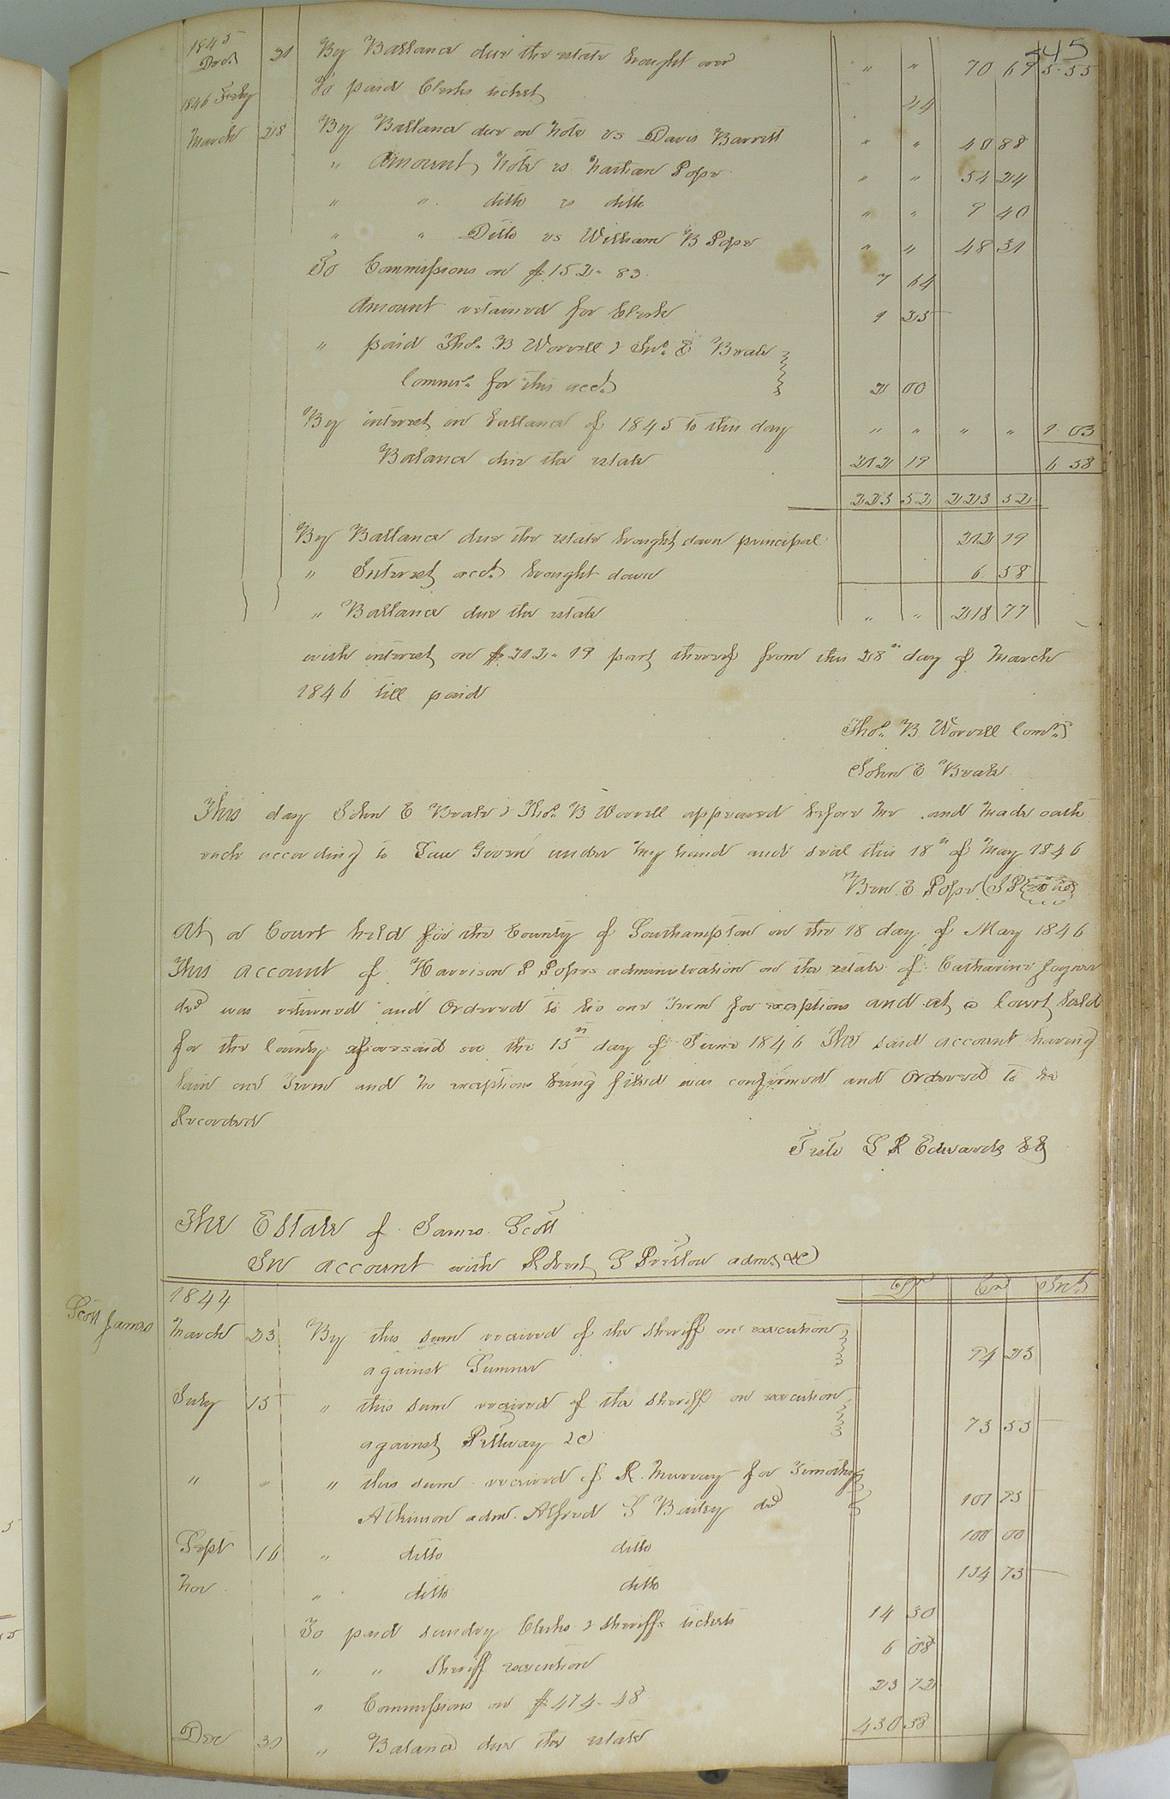 445
1845
Decr 31 By Ballance due the estate brought over " " 70 69 5.55
1846 Feby To paid Clerks ticket 44
March 28 By Ballance due on Note vs Davis Barrett " " 40 88
" Amount Note vs Nathan Pope " " 54 24
" " ditto vs ditto " " 9 40
" " Ditto vs William B Pope " " 48 31
To Commissions on $152.83 7 64
Amount retained for Clerk 1 25
" paid Thos. B Worrell & Jno. E Beale
Commrs. for this acct. 2 00
By interest on ballance of 1845 to this day " " " " 1 03
Balance due the estate 212 19 6 58
223 52 223 52
By Ballance due the estate brought down principal 212 19
" Interest acct. brought down 6 58
" Ballance due the estate " " 218 77
with interest on $212.19 part thereof from this 28th day of March
1846 till paid
Thos. B Worrell Comrs.
John E Beale
This day John E Beale & Thos. B Worrell appeared before me and made oath
each according to Law Given under my hand and seal this 18th of May 1846
Ben. E Pope (J P
At a Court held for the County of Southampton on the 18 day of May 1846
This account of Harrison P Popes administration on the estate of Catharine Joyner
decd was returned and Ordered to lie one Term for exceptions and at a Court held
for the County aforesaid on the 15th day of June 1846 The said account having
lain one Term and no exceptions being filed was confirmed and Ordered to be
Recorded
Teste L R Edwards CC
The Estate of James Scott
In account with Robert S Preslow adm. &c
Dr Cr Int.
Scott James
1844
March 23 By this sum received of the Sheriff on execution
against Sumner 94 25
July 15 " this sum received of the Sheriff on execution
against Pittway &c 73 55
" " " this sum received of R. Murray for Timothy
Atkinson adm. Alfred S Bailey decd 101 95
Sept 16 " ditto ditto 100 00
Nov " ditto ditto 134 73
To paid sundry Clerks & sheriffs tickets 14 30
" " Sheriff execution 6 08
" Commissions on $474.48 23 72
Dec 31 " Balance due the estate 430 38